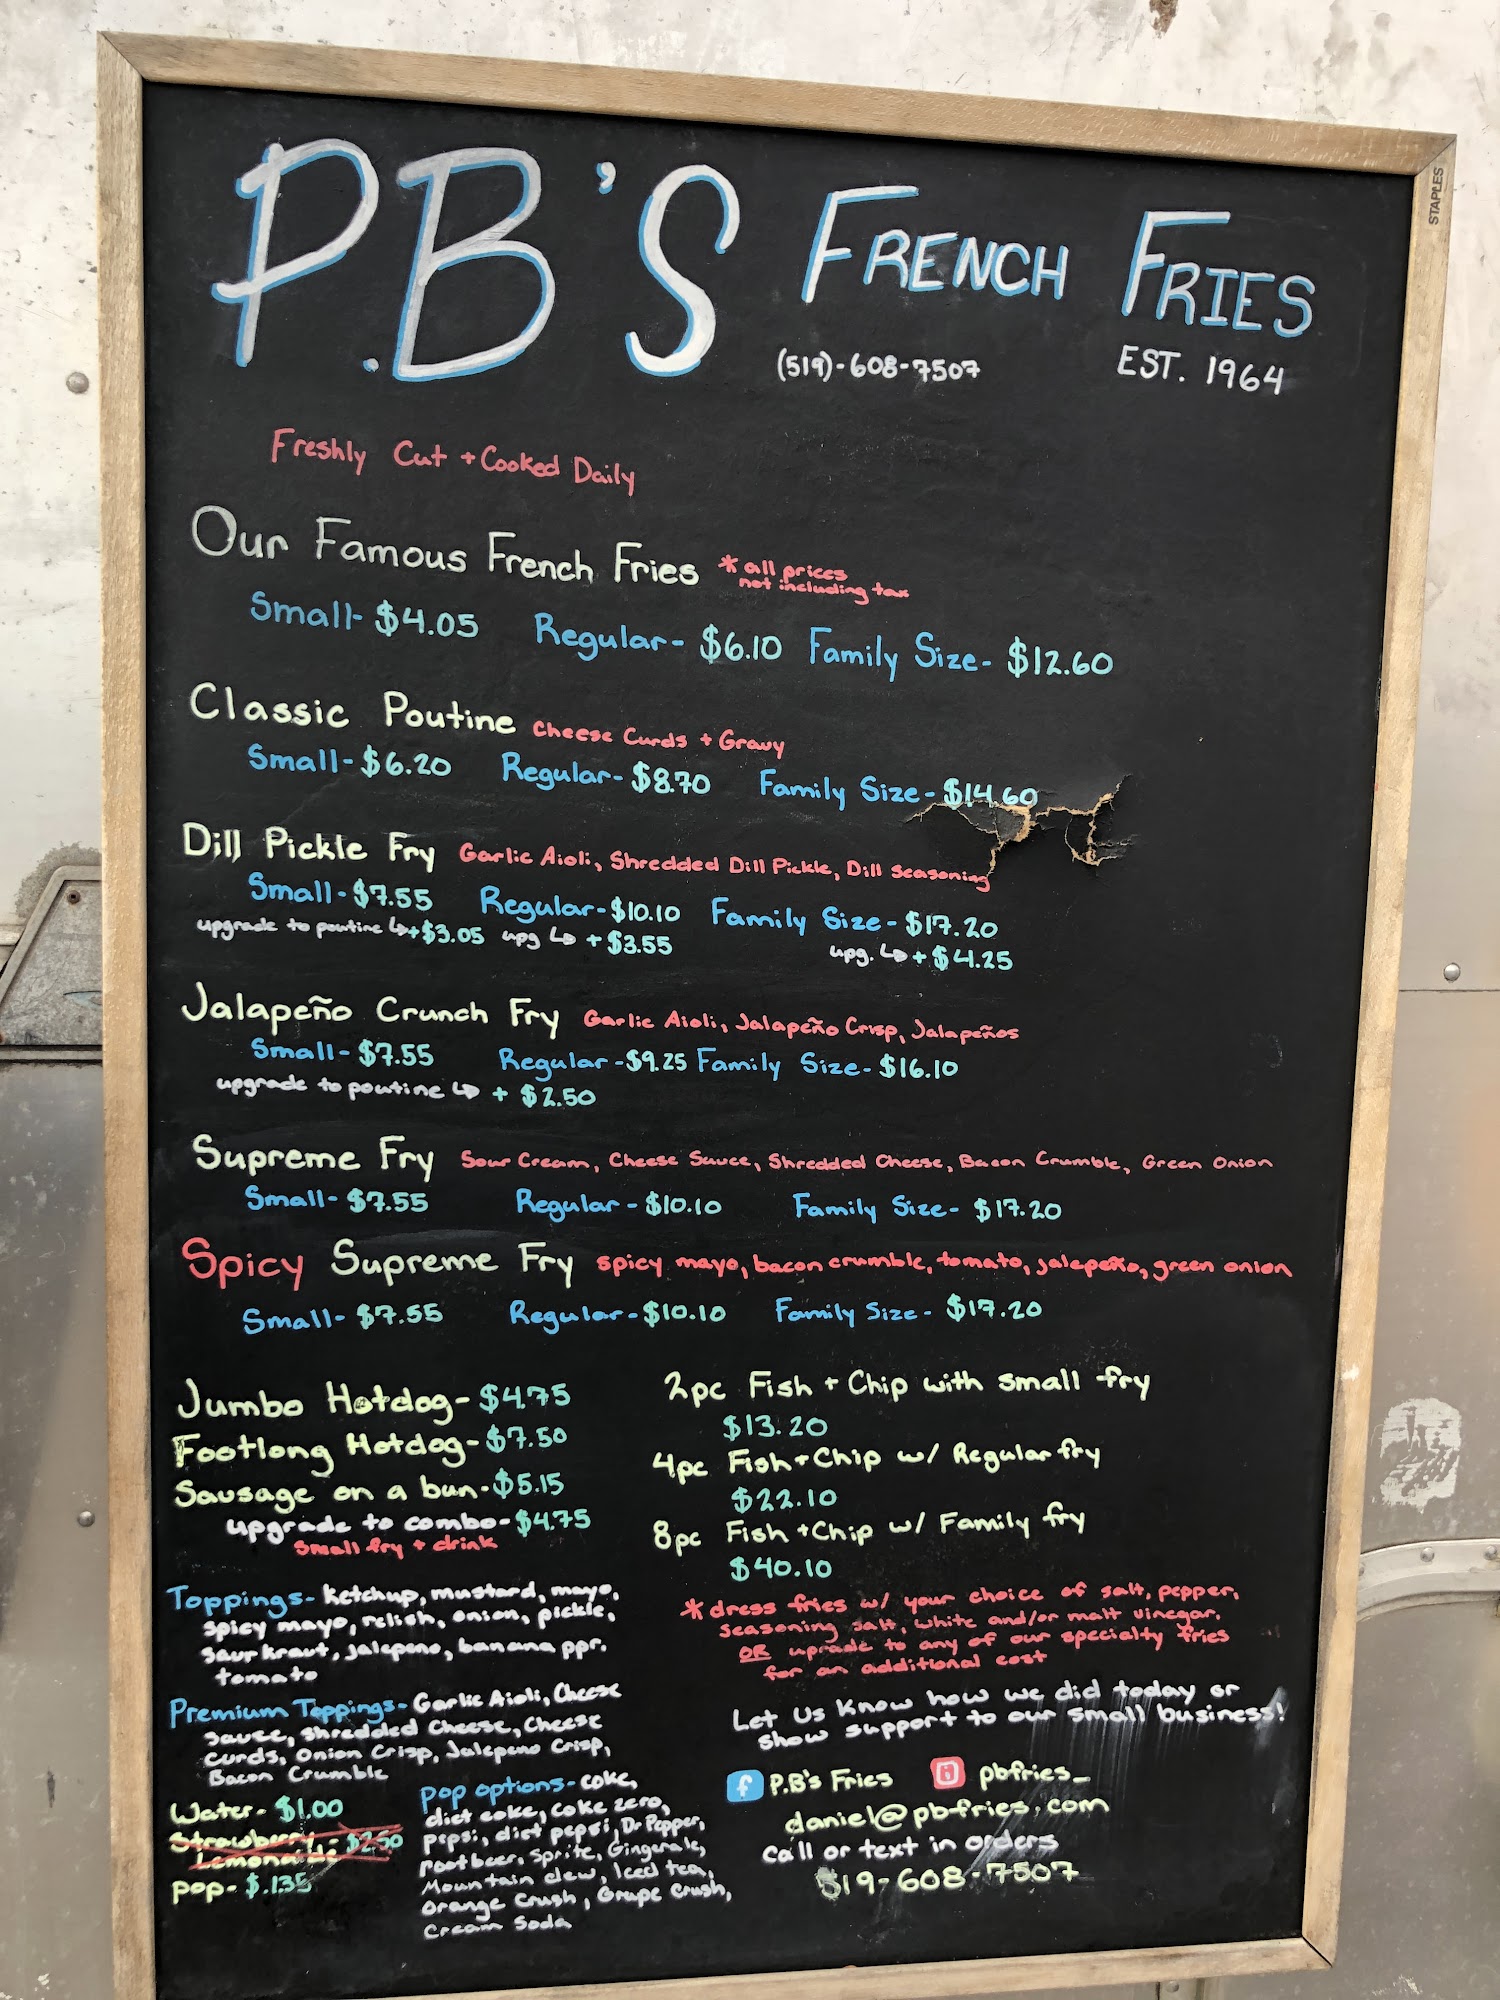 P.B'S FRENCH FRIES
(519)-608-7507 EST. 1964
Freshly Cut + Cooked Daily
Our Famous French Fries * all prices
not including tax
Small- $4.05 Regular- $6.10 Family Size- $12.60
Classic Poutine Cheese Curds + Gravy
Small- $6.20 Regular- $8.70 Family Size- $14.60
Dill Pickle Fry Garlic Aioli, Shredded Dill Pickle, Dill seasoning
Small- $7.55 Regular- $10.10 Family Size- $17.20
upgrade to poutine ↳ +$3.05 upg ↳ + $3.55 upg. ↳ + $4.25
Jalapeño Crunch Fry Garlic Aioli, Jalapeño Crisp, Jalapeños
Small- $7.55 Regular -$9.25 Family Size- $16.10
upgrade to poutine ↳ + $2.50
Supreme Fry Sour Cream, Cheese Sauce, Shredded Cheese, Bacon Crumble, Green Onion
Small- $7.55 Regular - $10.10 Family Size- $17.20
Spicy Supreme Fry spicy mayo, bacon crumble, tomato, jalepeño, green onion
Small- $7.55 Regular- $10.10 Family Size- $17.20
Jumbo Hotdog- $4.75
Footlong Hotdog- $7.50
Sausage on a bun- $5.15
upgrade to combo- $4.75
Small fry + drink
2pc Fish + Chip with small fry
$13.20
4pc Fish + Chip w/ Regular fry
$22.10
8pc Fish + Chip w/ Family fry
$40.10
Toppings- ketchup, mustard, mayo,
spicy mayo, relish, onion, pickle,
saurkraut, jalepeno, banana ppr.
tomato
Premium Toppings- Garlic Aioli, Cheese
sauce, Shredded Cheese, Cheese
curds, Onion Crisp, Jalepeno Crisp,
Bacon Crumble
* dress fries w/ your choice of salt, pepper,
seasoning salt, white and/or malt vinegar.
OR uprade to any of our specialty fries
for an additional cost
Let Us Know how we did today or
show support to our small business!
Water- $1.00
Strawberry
Lemonade- $2.50
pop- $.135
pop options- coke,
diet coke, coke zero,
pepsi, diet pepsi, Dr Pepper,
rootbeer, Sprite, Gingerale,
Mountain dew, Iced tea,
Orange Crush, Grape Crush,
Cream Soda
f P.B's Fries pbfries_
daniel@pbfries.com
call or text in orders
519-608-7507
STAPLES